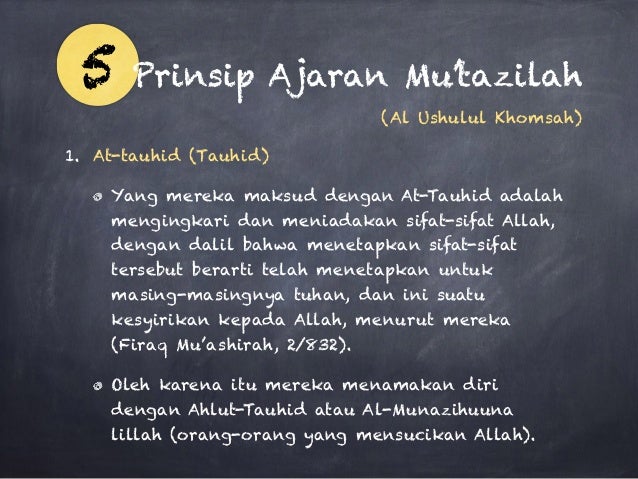 5 Prinsip Ajaran Mu'tazilah
(Al Ushulul Khomsah)
1. At-tauhid (Tauhid)
Yang mereka maksud dengan At-Tauhid adalah
mengingkari dan meniadakan sifat-sifat Allah,
dengan dalil bahwa menetapkan sifat-sifat
tersebut berarti telah menetapkan untuk
masing-masingnya tuhan, dan ini suatu
kesyirikan kepada Allah, menurut mereka
(Firaq Mu’ashirah, 2/832).
Oleh karena itu mereka menamakan diri
dengan Ahlut-Tauhid atau Al-Munazihuuna
lillah (orang-orang yang mensucikan Allah).